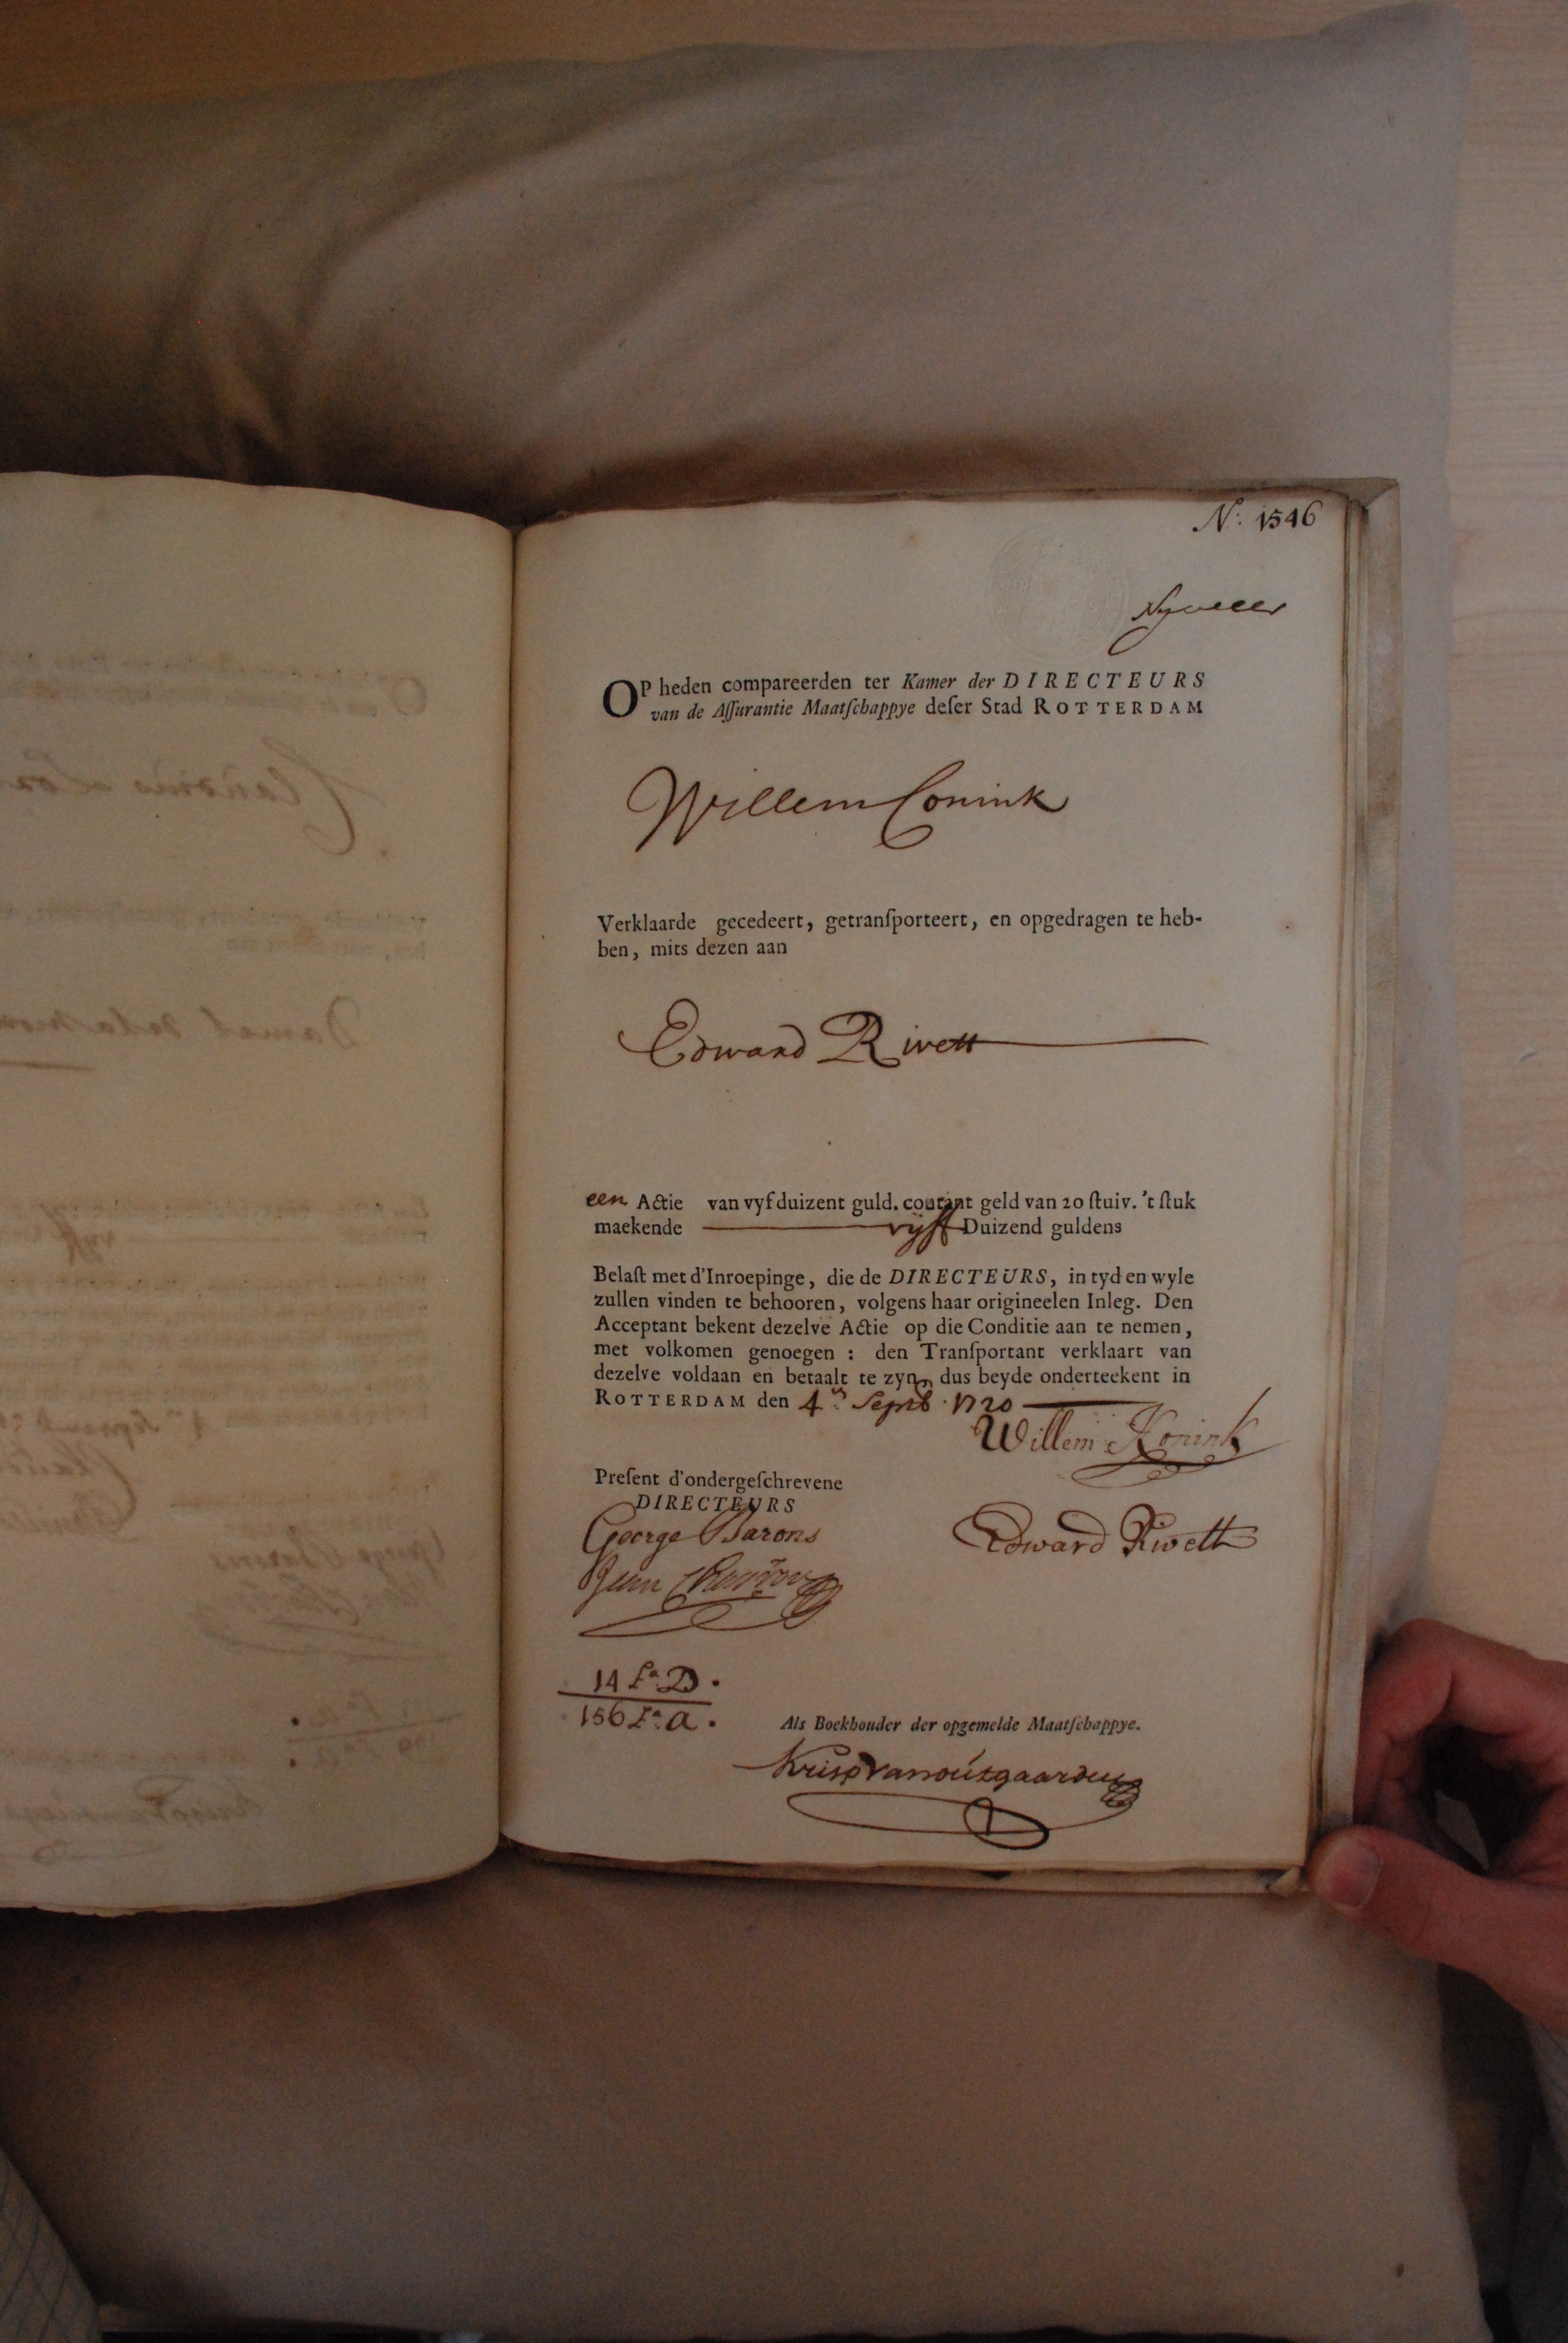 N: 1546
OP heden compareerden ter Kamer der DIRECTEURS
van de Aſſurantie Maatſchappye deſer Stad ROTTERDAM
Willem Conink
Verklaarde gecedeert, getranſporteert, en opgedragen te heb-
ben, mits dezen aan
Edward Rivett
een Actie van vyf duizent guld. courant geld van 20 ſtuiv. 't ſtuk
maekende vyff Duizend guldens
Belaſt met d'Inroepinge, die de DIRECTEURS, in tyd en wyle
zullen vinden te behooren, volgens haar origineelen Inleg. Den
Acceptant bekent dezelve Actie op die Conditie aan te nemen,
met volkomen genoegen : den Tranſportant verklaart van
dezelve voldaan en betaalt te zyn, dus beyde onderteekent in
ROTTERDAM den 4 Septb. 1720
Willem Konink
Preſent d'ondergeſchrevene
DIRECTEURS
George Barons
Edward Rivett
14 fo. D.
156 fo. a.
Als Boekhouder der opgemelde Maatſchappye.